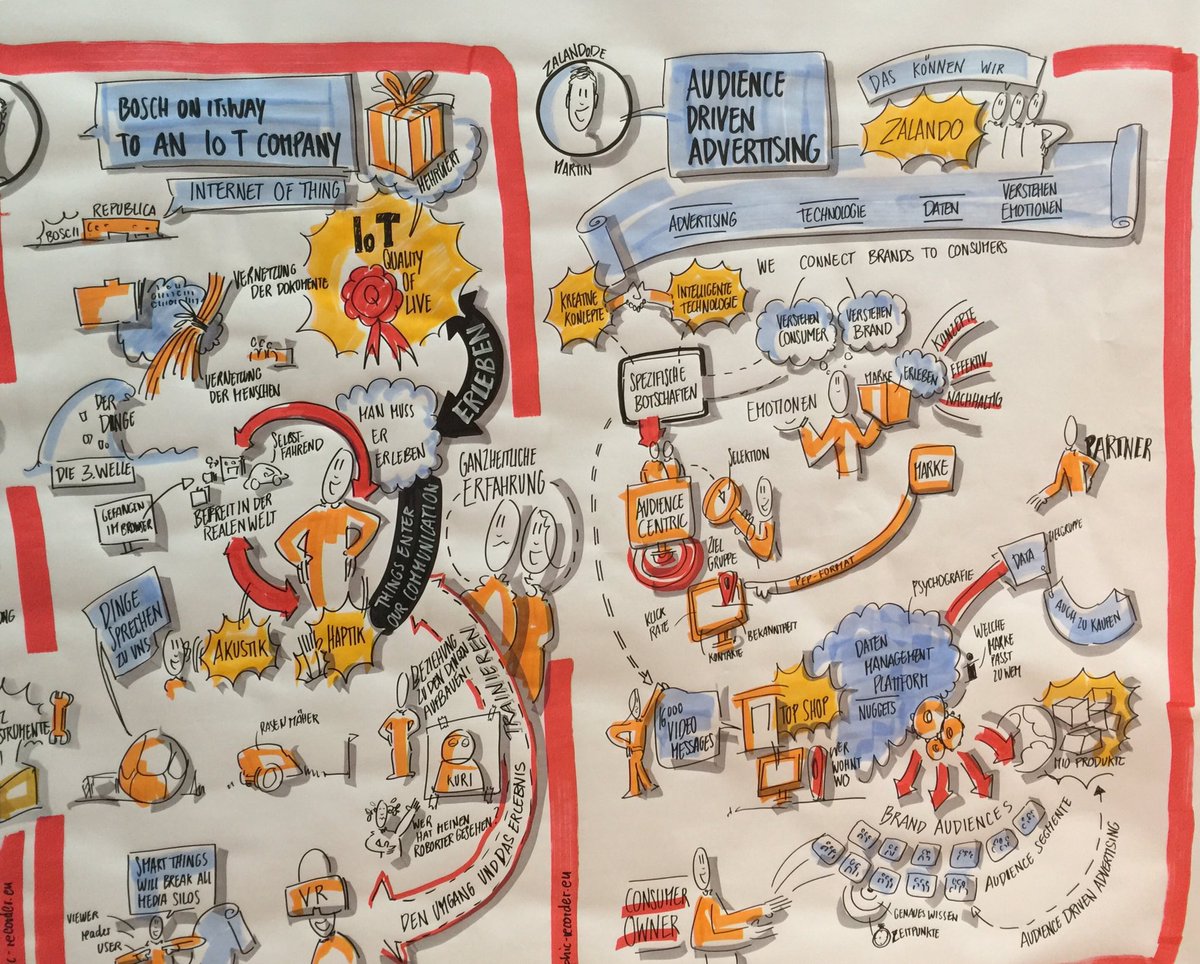 BOSCH ON ITS WAY
TO AN IoT COMPANY
INTERNET OF THING
MEHRWERT
REPUBLICA
BOSCH
IoT
QUALITY
OF
LIVE
Q
VERNETZUNG
DER DOKUMENTE
VERNETZUNG
DER MENSCHEN
ERLEBEN
DER
DINGE
DIE 3. WELLE
MAN MUSS
ER
ERLEBEN
SELBST-
FAHREND
GEFANGEN
IM BROWSER
BEFREIT IN DER
REALEN WELT
GANZHEITLICHE
ERFAHRUNG
THINGS ENTER
OUR COMMUNICATION
DINGE
SPRECHEN
ZU UNS
AKUSTIK
HAPTIK
BEZIEHUNG
ZU DEN DINGEN
AUFBAUEN!!
TRAINIEREN
STRUMENTE
RASEN MÄHER
KURI
WER
HAT MEINEN
ROBORTER GESEHEN?
DEN UMGANG UND DAS ERLEBNIS
SMART THINGS
WILL BREAK ALL
MEDIA SILOS
VIEWER
reader
USER
VR
c-recorder.eu
phic-recorder.eu
ZALANDO.DE
MARTIN
AUDIENCE
DRIVEN
ADVERTISING
DAS KÖNNEN WIR
ZALANDO
ADVERTISING
TECHNOLOGIE
DATEN
VERSTEHEN
EMOTIONEN
WE CONNECT BRANDS TO CONSUMERS
KREATIVE
KONZEPTE
INTELLIGENTE
TECHNOLOGIE
VERSTEHEN
CONSUMER
VERSTEHEN
BRAND
SPEZIFISCHE
BOTSCHAFTEN
EMOTIONEN
MARKE
ERLEBEN
KONZEPTE
EFFEKTIV
NACHHALTIG
PARTNER
SELEKTION
MARKE
AUDIENCE
CENTRIC
ZIEL
GRUPPE
PEP-FORMAT
KLICK
RATE
BEKANNTHEIT
KONTAKTE
PSYCHOGRAFIE
DATA
ZIELGRUPPE
AUCH ZU KAUFEN
DATEN
MANAGEMENT
PLATTFORM
NUGGETS
WELCHE
MARKE
PASST
ZU WEM
16000
VIDEO
MESSAGES
TOP SHOP
WER
WOHNT
WO
MIO PRODUKTE
BRAND AUDIENCES
AUDIENCE SEGMENTE
CONSUMER
OWNER
GENAUES WISSEN
ZEITPUNKTE
AUDIENCE DRIVEN ADVERTISING